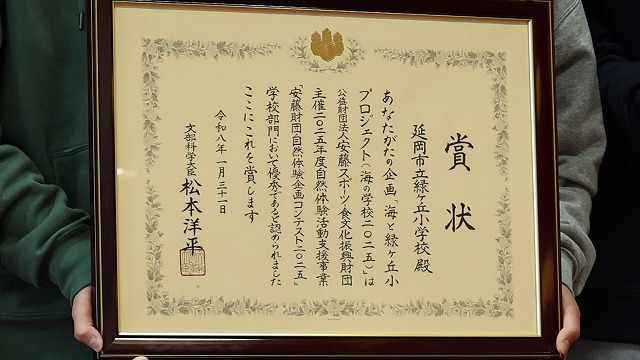 賞状
延岡市立緑ヶ丘小学校殿
あなたがたの企画「海と緑ヶ丘小
プロジェクト(海の学校二〇二五)」は
公益財団法人安藤スポーツ・食文化振興財団
主催二〇二五年度自然体験活動支援事業
「安藤財団自然体験企画コンテスト二〇二五」
学校部門において優秀であると認められました
ここにこれを賞します
令和八年一月三十一日
文部科学大臣 松本洋平